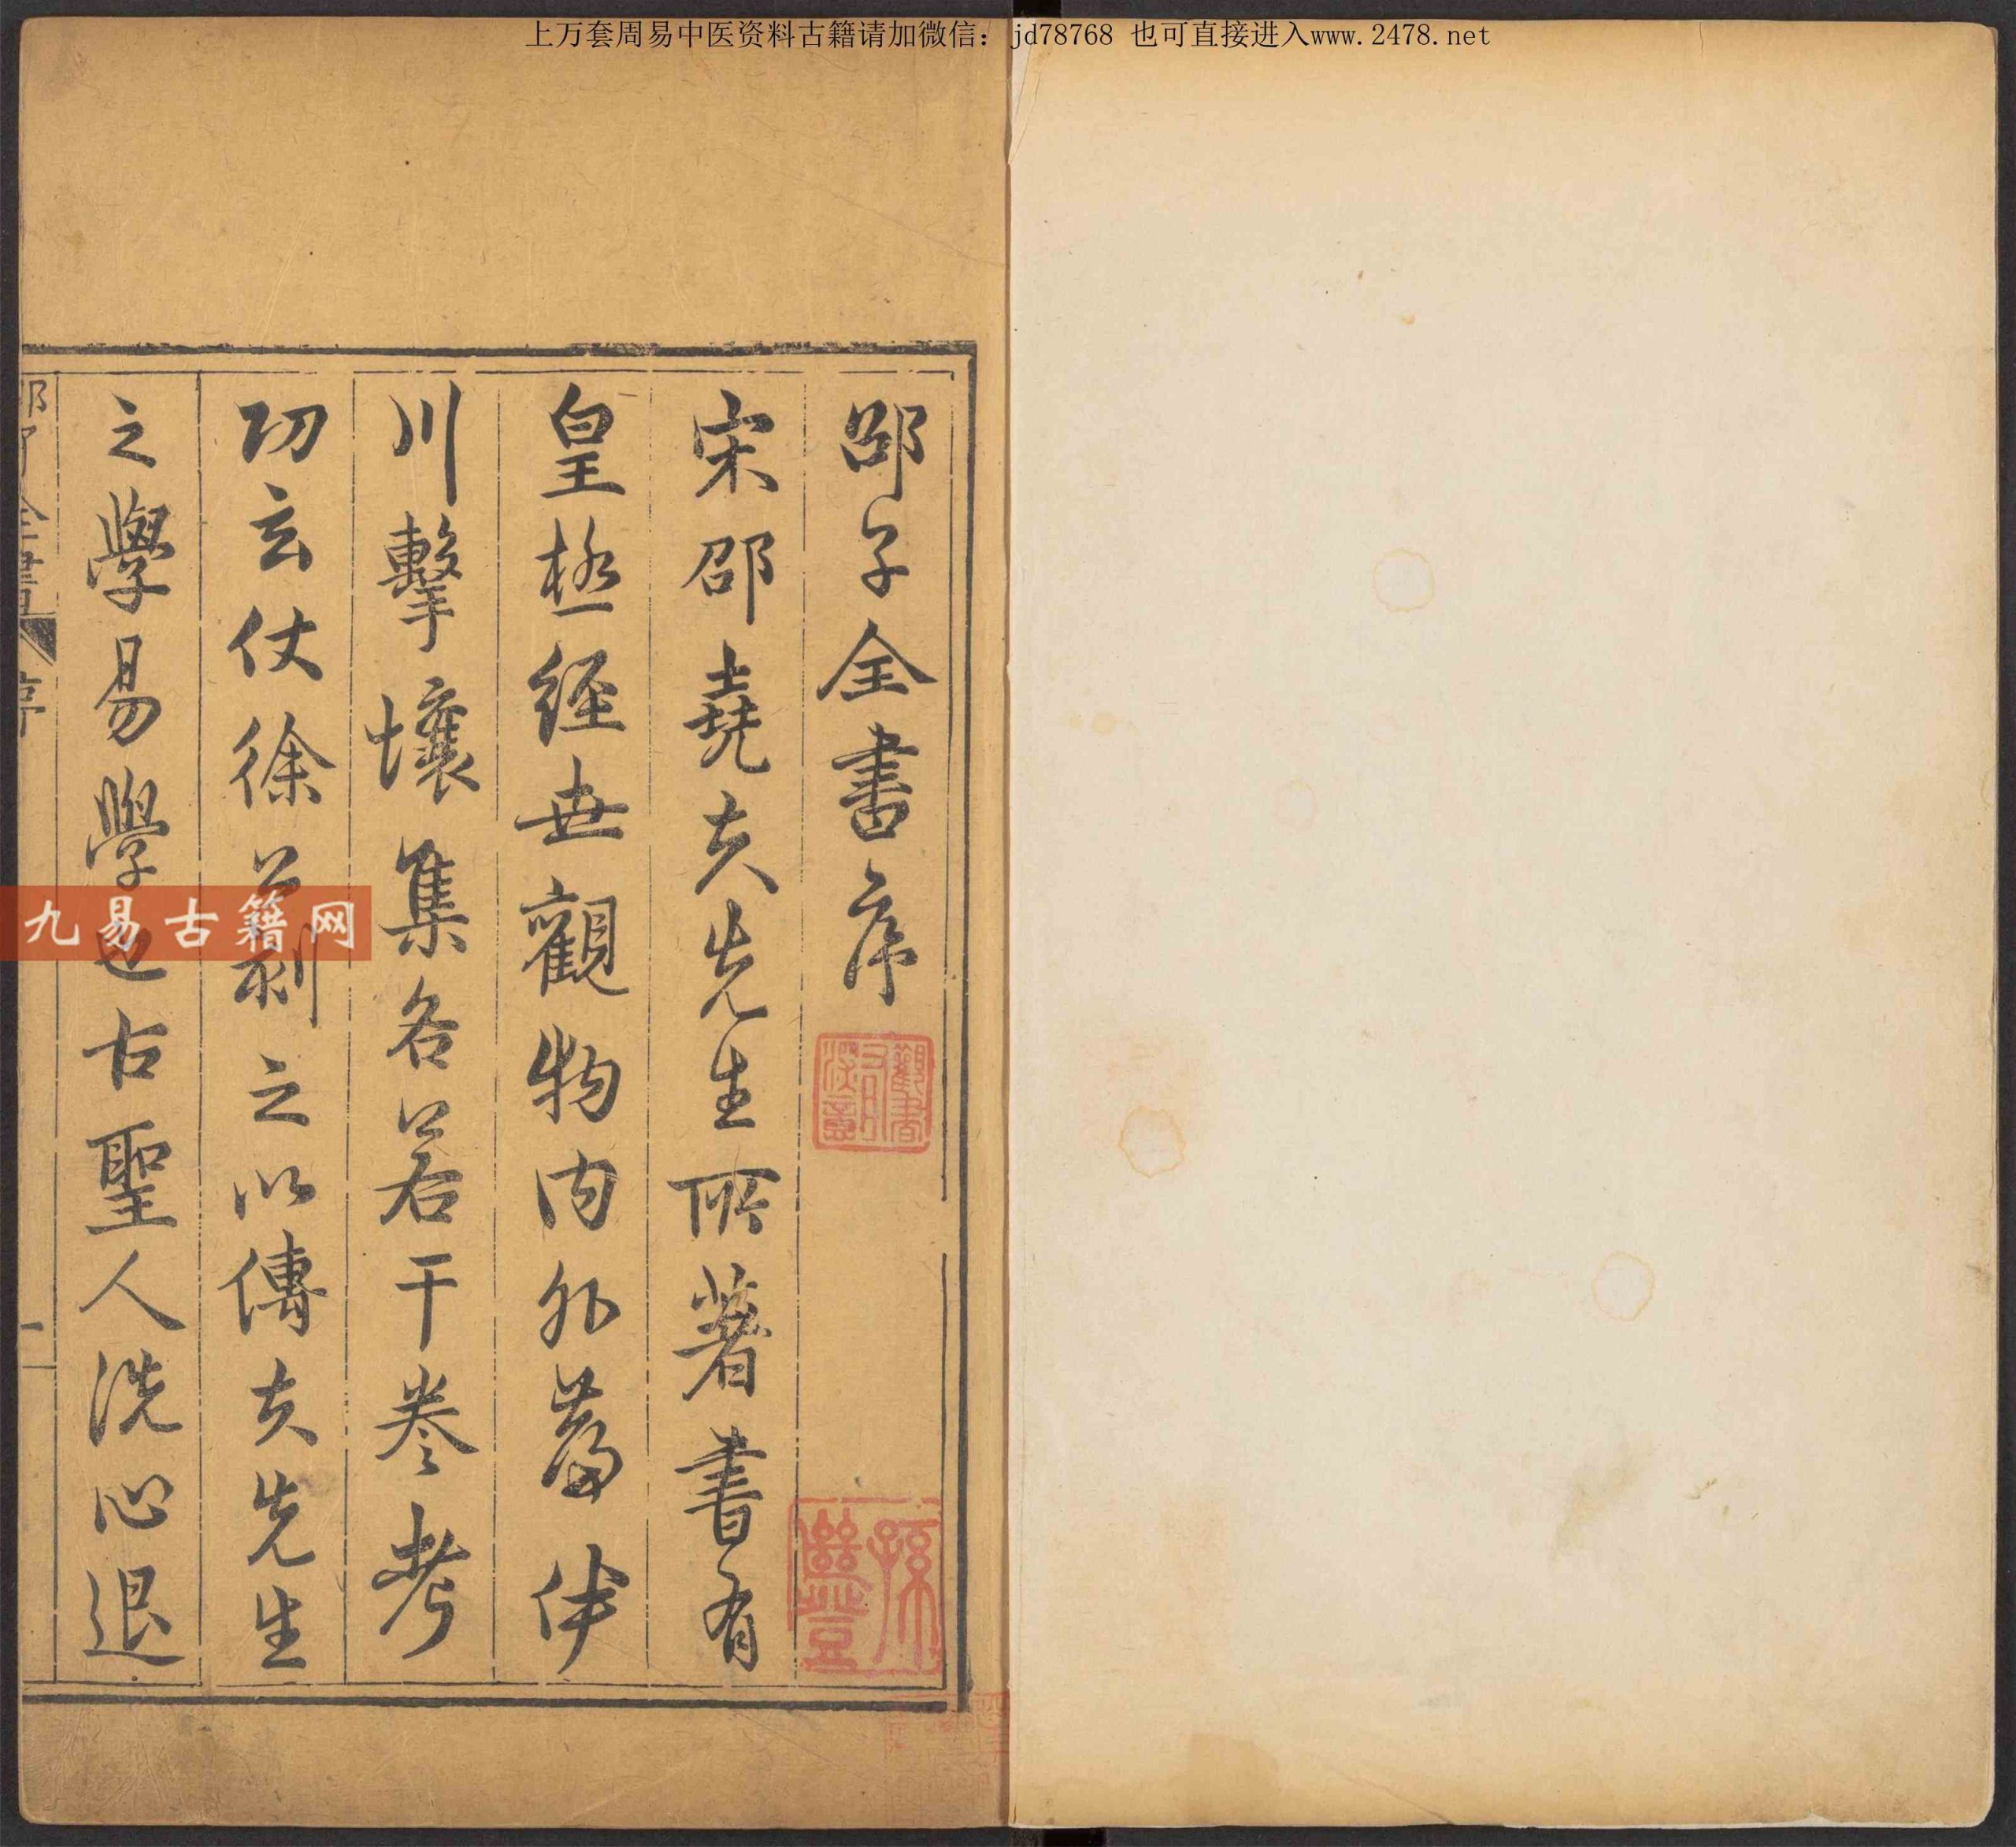 上万套周易中医资料古籍请加微信：jd78768 也可直接进入www.2478.net
邵子全書序
宋邵堯夫先生所著書有
皇極經世觀物內外篇伊
川擊壤集各若干卷考
功玄仗徐公前刻之以傳夫先生
之學易學也古聖人洗心退
邵子全書
序
一
觀書
孫
九易古籍网